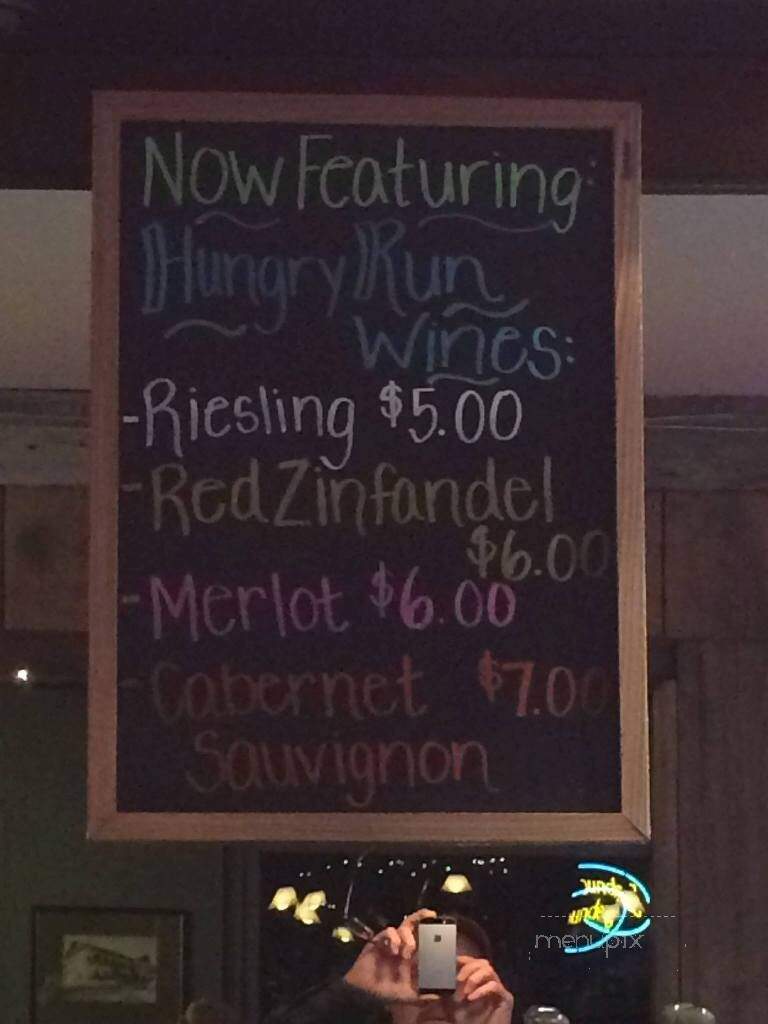 Now Featuring:
Hungry Run
Wines:
-Riesling $5.00
-Red Zinfandel
$6.00
-Merlot $6.00
-Cabernet $7.00
Sauvignon
menupix